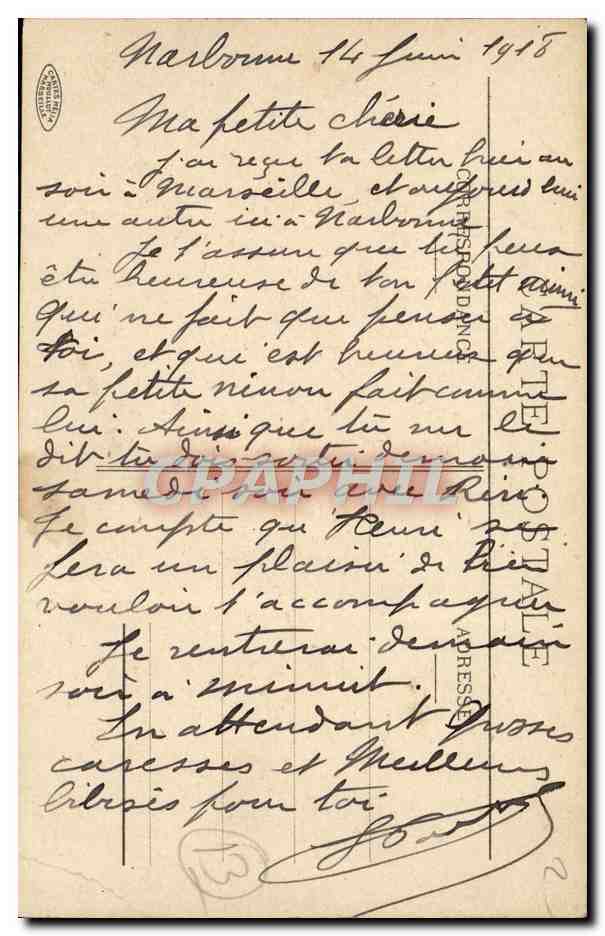 Narbonne 14 Juin 1918
Ma petite chérie
J'ai reçu ta lettre hier au
soir à Marseille, et aujourd'hui
une autre ici à Narbonne
Je t'assure que tu peux
être heureuse de ton petit
qui ne fait que penser à
toi, et qui est heureux que
sa petite ninon fait comme
lui. Ainsi que tu me le
dit tu dois sortir demain
samedi soir avec
Je compte qu'Henri se
fera un plaisir de bien
vouloir t'accompagner
Je rentrerai demain
soir à minuit.
En attendant Grosses
caresses et Meilleurs
bibises pour toi
13
2
CARTE POSTALE
CORRESPONDANCE
ADRESSE
CPAPHIL